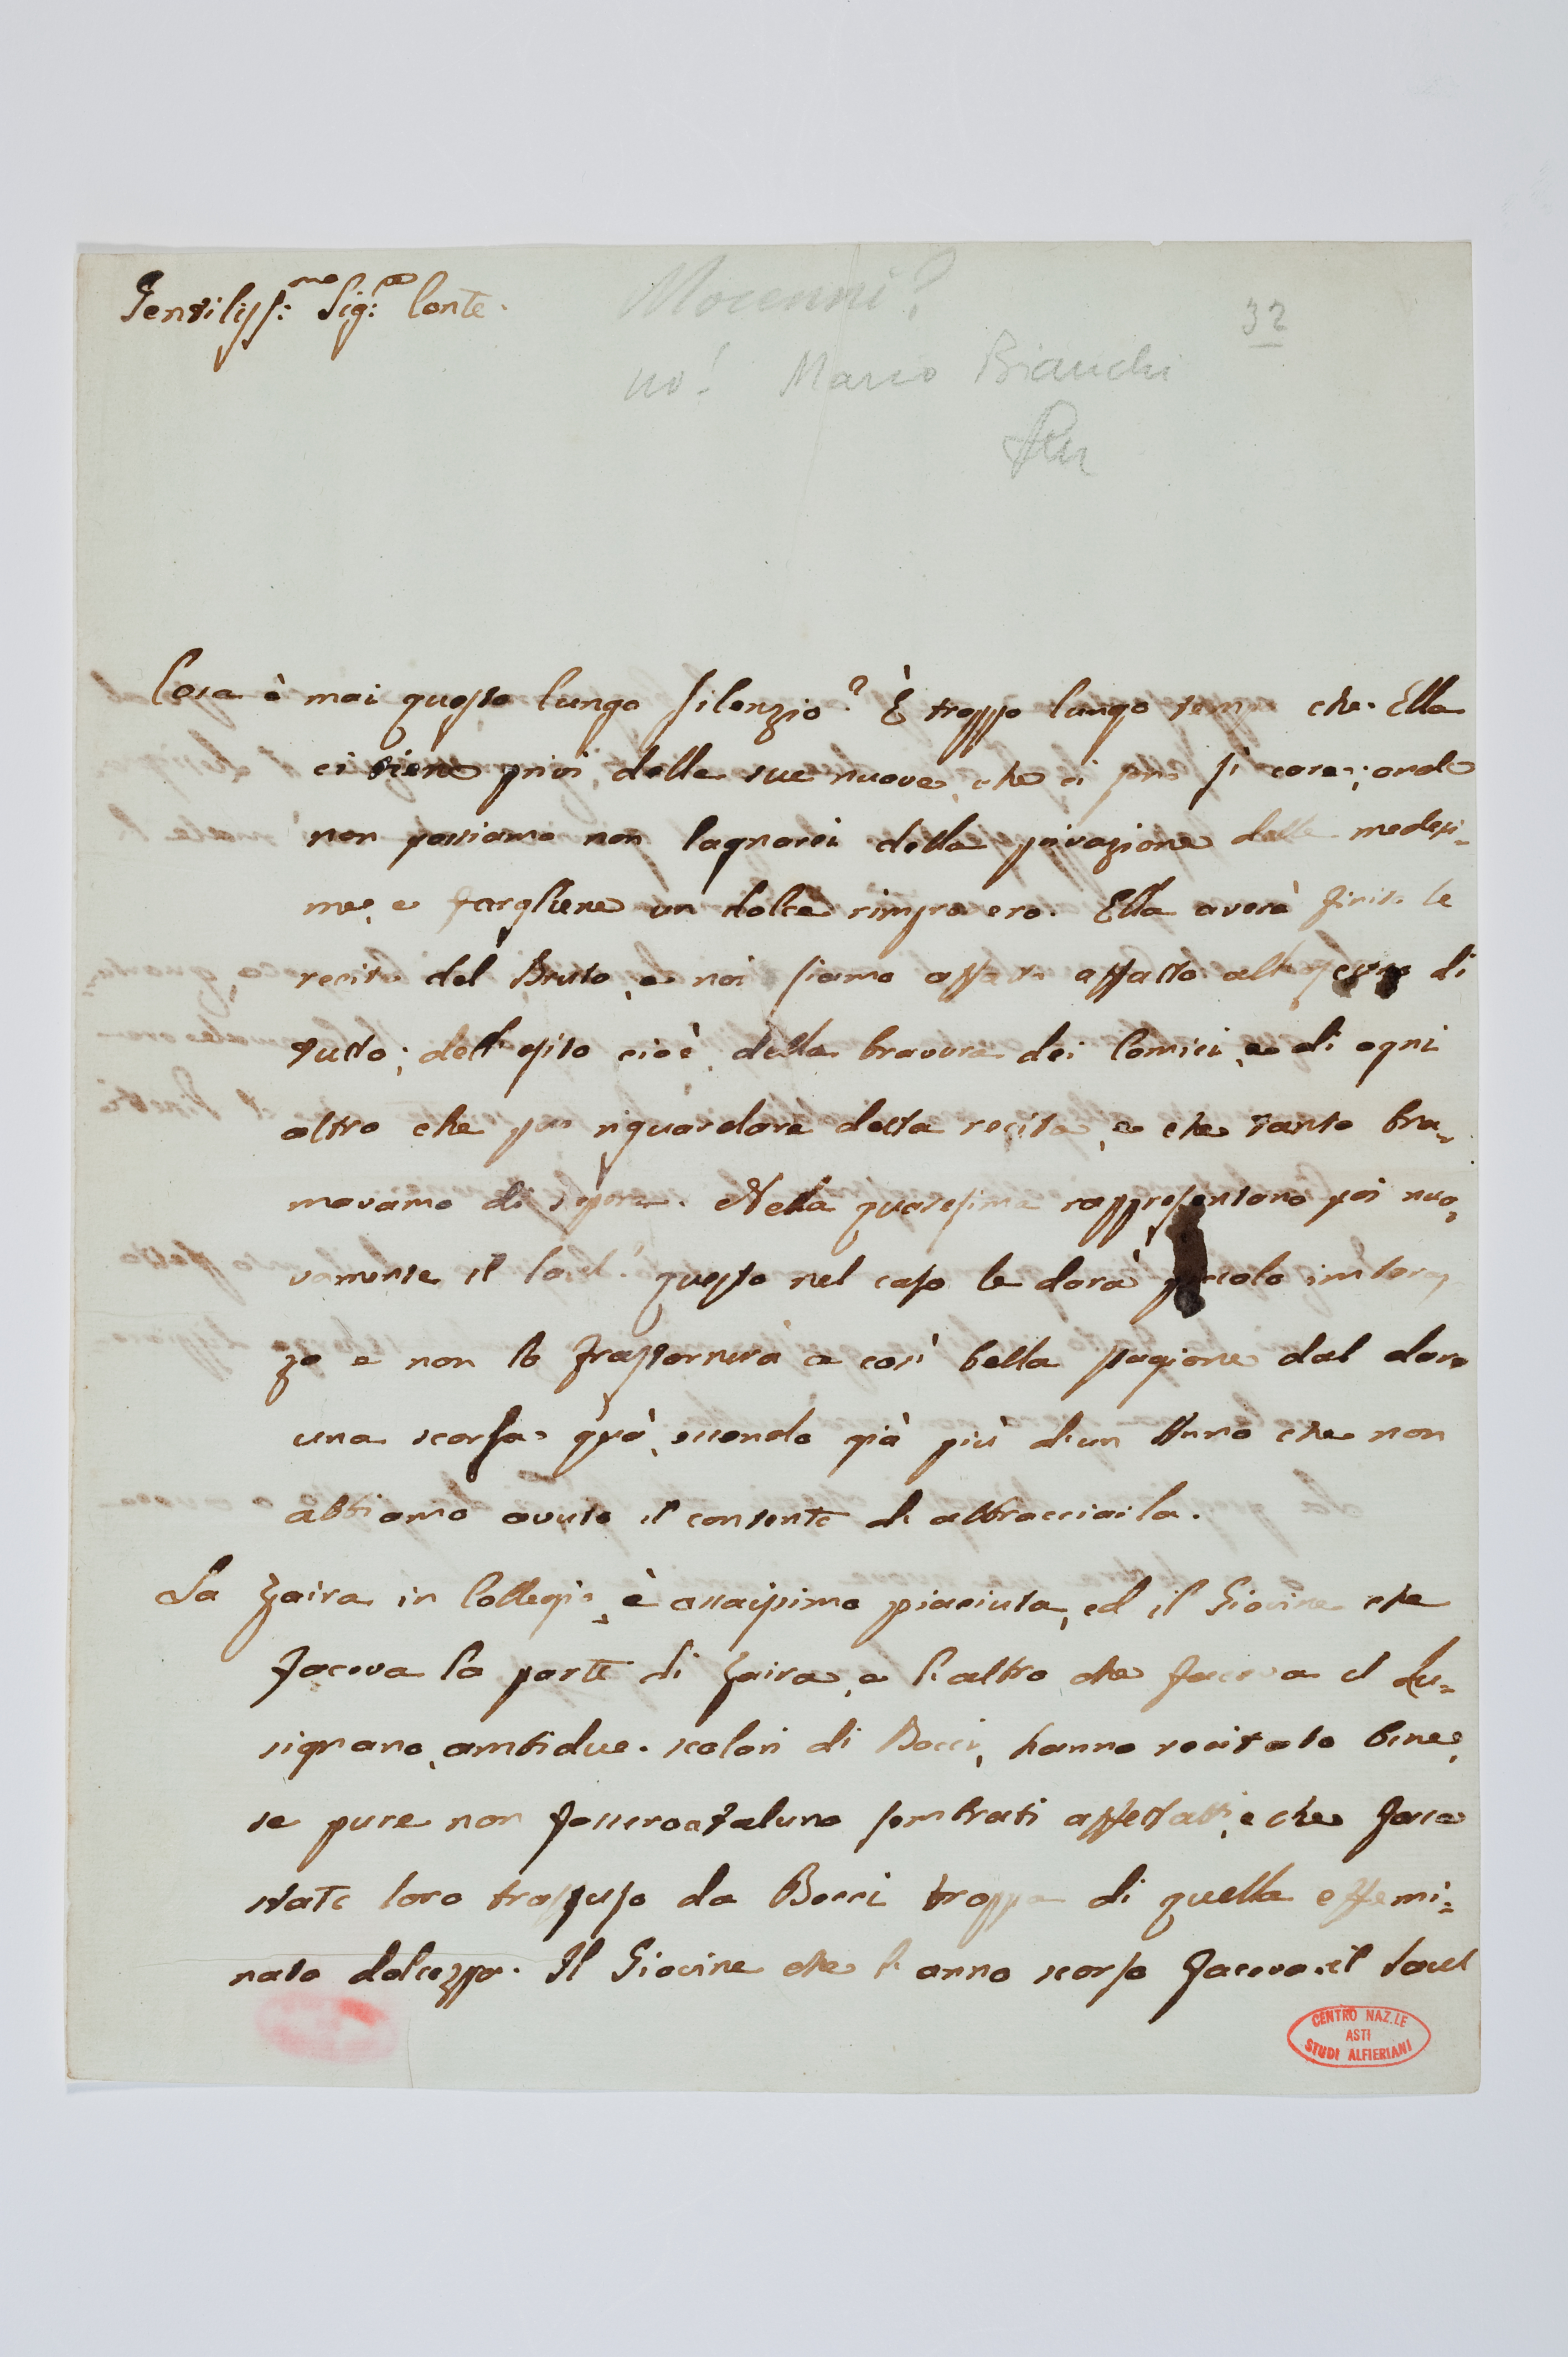 Gentiliss:mo Sig:re Conte.
Mocenni?
32
no! Mario Bianchi
Cosa è mai questo lungo silenzio? È troppo lungo temp che Ella
ci tiene privi delle sue nuove, che ci sono sì care; onde
non possiamo non lagnarci della privazione delle medesi-
me, e fargliene un dolce rimprovero. Ella averà finito le
recite del Bruto, e noi siamo affatto affatto all' di
tutto; dell' esito cioè, della bravura dei Comici, e di ogni
altro che può riguardare detta recita, e che tanto bra-
mavamo di sapere. Nella quaresima rappresentano poi nuo-
vamente il Saul? questo nel caso le darà piccolo imbaraz
zo e non lo frastornerà a così bella stagione dal dare
una scorsa quà, essendo già più di un Anno che non
abbiamo avuto il contento di abbracciarla.
La Zaira in Collegio, è assaissimo piaciuta, ed il Giovine che
faceva la parte di Zaira, e l'altro che faceva il Lu-
signano, ambidue scolari di Bocci, hanno recitato bene,
se pure non fossero a taluno sembrati affettati, e che fosse
stato loro trasfuso da Bocci troppa di quella effemi-
nata dolcezza. Il Giovine che l'anno scorso faceva il Saul
CENTRO NAZ.LE
ASTI
STUDI ALFIERIANI